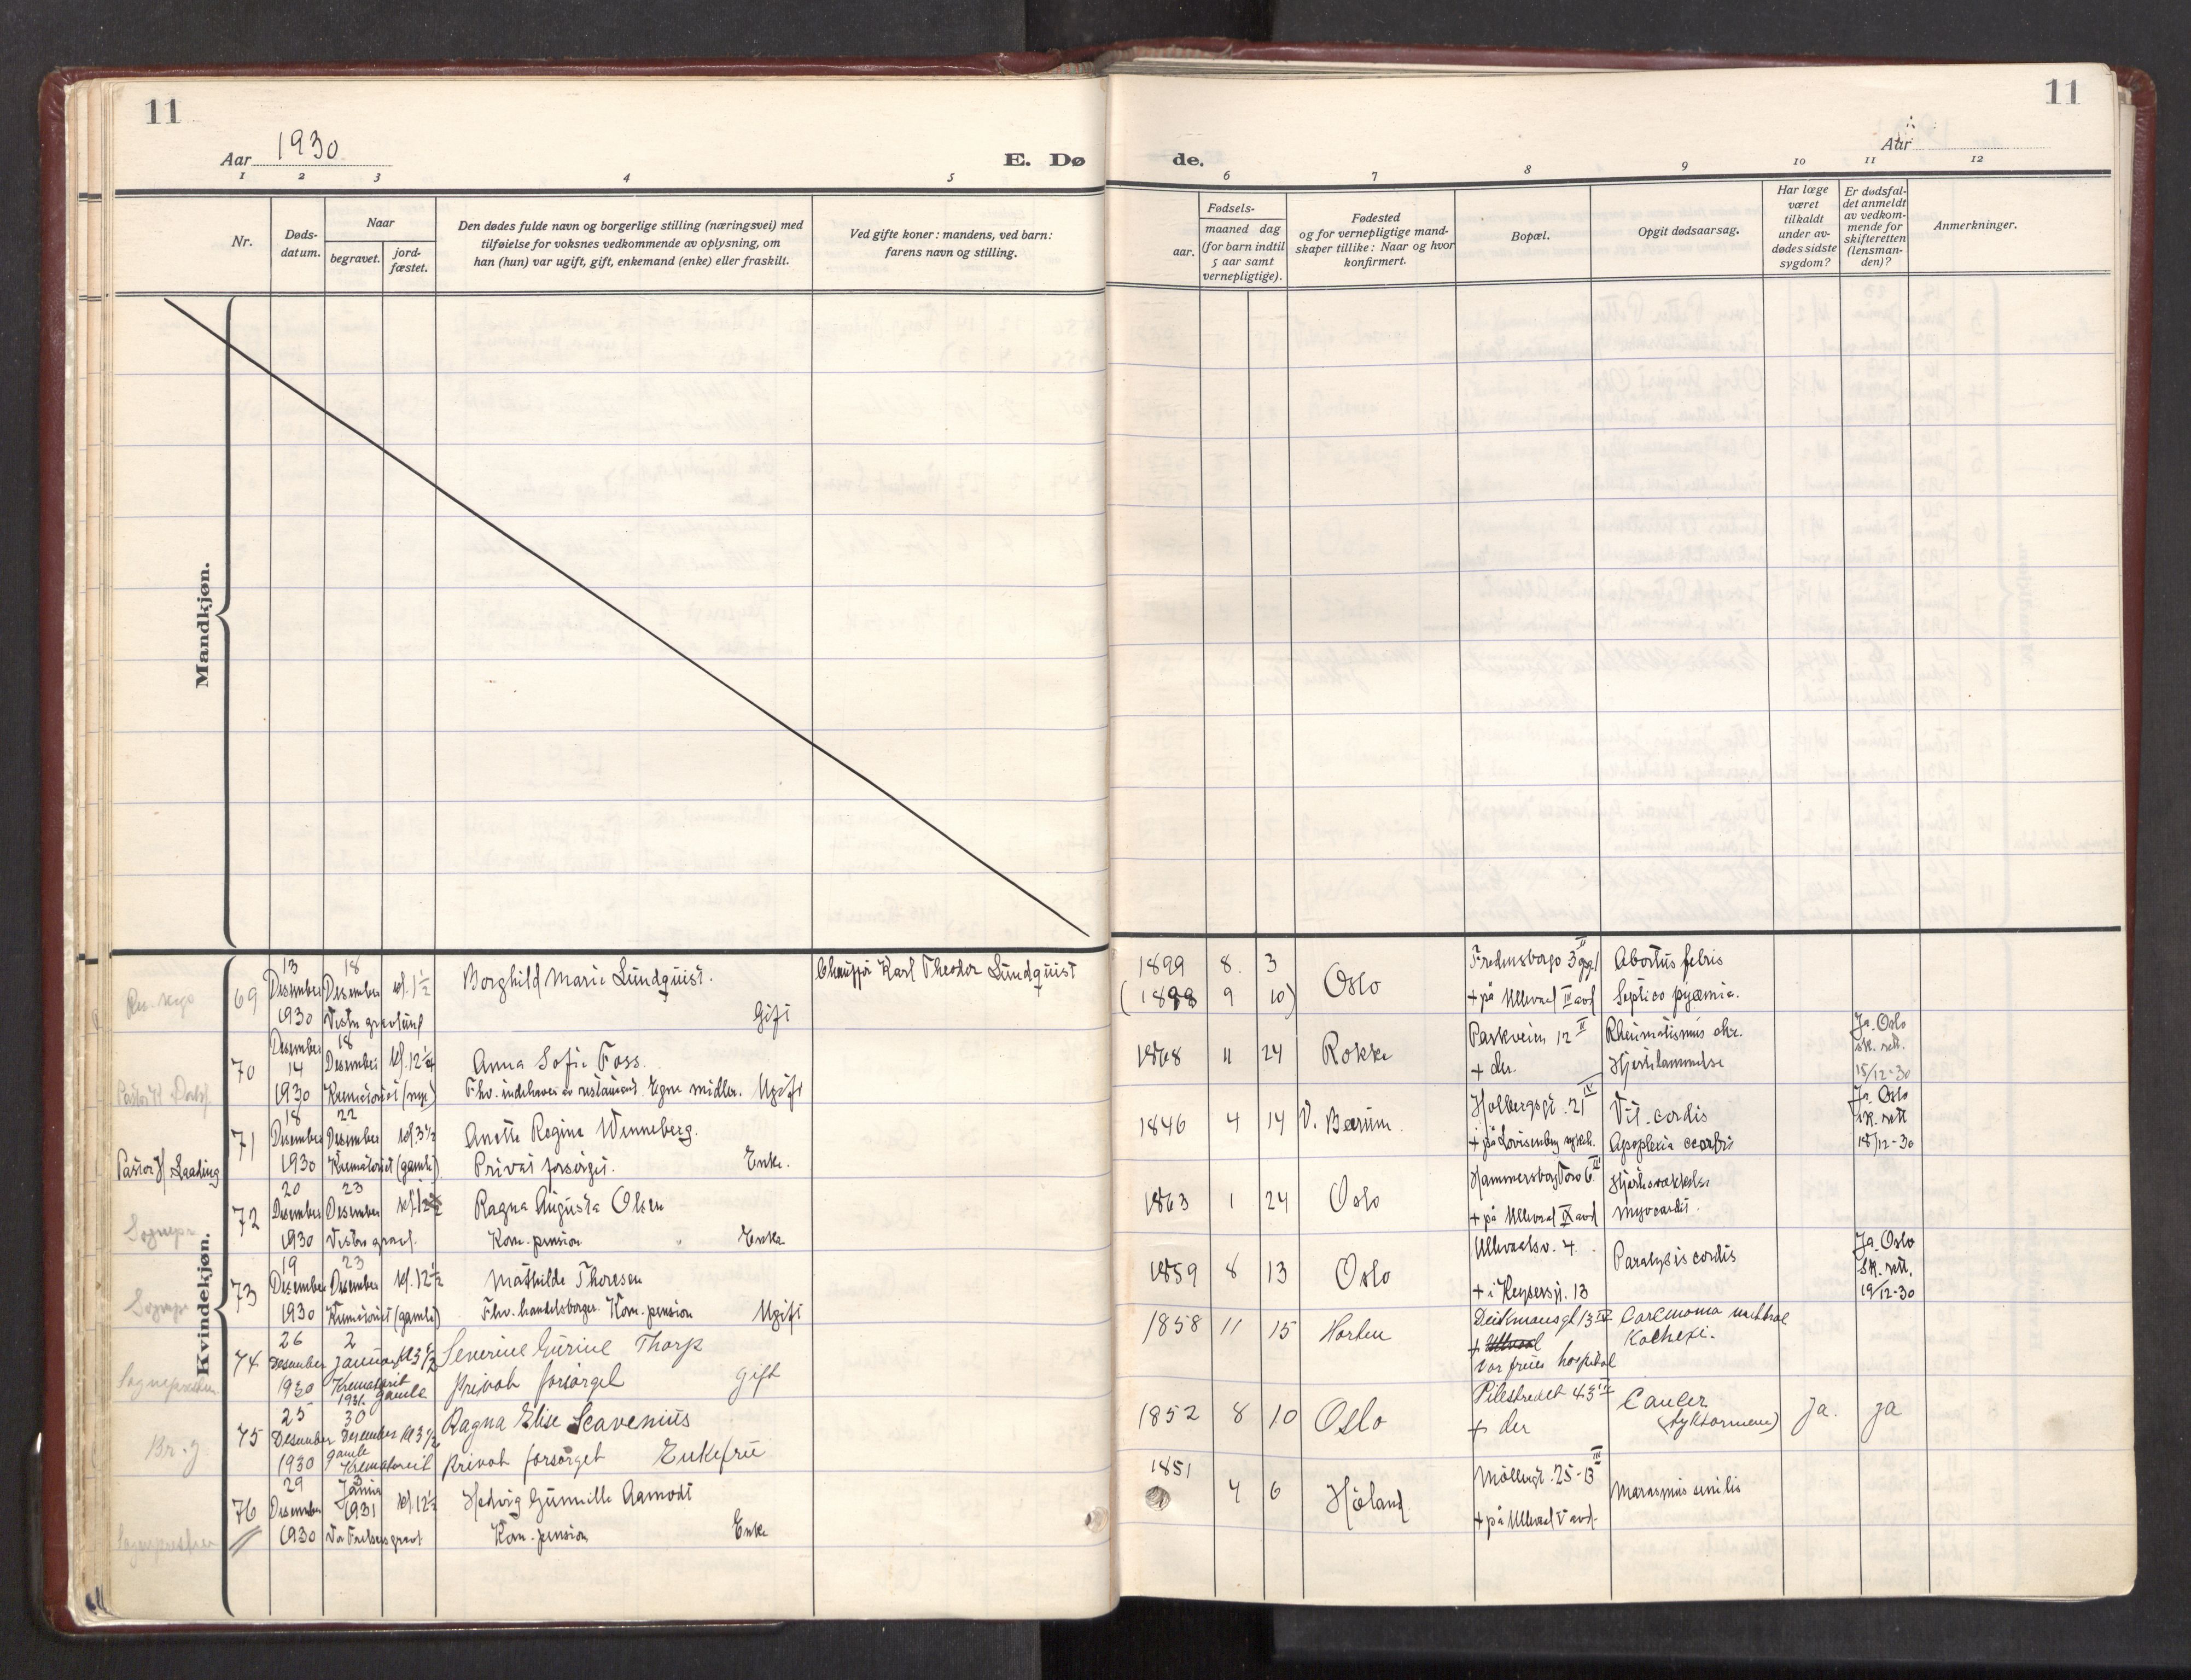 11
11
Aar 1930
E. Dø
de.
Aar
1 2 3 4 5 6 7 8 9 10 11 12
Nr.
Døds-
datum.
Naar
begravet.
jord-
fæstet.
Den dødes fulde navn og borgerlige stilling (næringsvei) med
tilføielse for voksnes vedkommende av oplysning, om
han (hun) var ugift, gift, enkemand (enke) eller fraskilt.
Ved gifte koner: mandens, ved barn:
farens navn og stilling.
Fødsels-
aar.
maaned dag
(for barn indtil
5 aar samt
vernepligtige).
Fødested
og for vernepligtige mand-
skaper tillike: Naar og hvor
konfirmert.
Bopæl.
Opgit dødsaarsag.
Har læge
været
tilkaldt
under av-
dødes sidste
sygdom?
Er dødsfal-
det anmeldt
av vedkom-
mende for
skifteretten
(lensman-
den)?
Anmerkninger.
Mandkjøn.
Kvindekjøn.
69
13
Desember
1930
18
Desember
Vestre gravlund
kl. 1 1/2
Borghild Marie Lundquist.
Gift
Chauffør Karl Theodor Lundquist
1899 8. 3
(1898 9 10)
Oslo
Fredensborgv 3 opg. I
+ på Ullevaal III avd
Abortus febris
Septico pyæmia.
70
Desember
14
1930
18
Desember
Krematoriet (nye)
Anna Sofie Foss.
Fhv. indehaver av restaurant. Egne midler. Ugift
1868 11 24
Rokke
Parkveien 12 II
+ der.
Rheumatismus chr.
Hjertelammelse
Ja. Oslo
sk. rett.
15/12-30
Pastor H. Laading
71
18
Desember
1930
22
Desember
Krematoriet (gamle)
kl. 3 1/2
Anette Regine Wenneberg.
Privat forsørget. Enke.
1846 4 14
V. Bærum.
Holbergsgt. 21 IV
+ på Lovisenberg sykeh.
Vit. cordis
Apoplexia cerebri
Ja. Oslo
sk. rett
18/12-30
Sognepr.
72
20
Desember
1930
23
Desember
Vestre gravl.
Ragna Augusta Olsen
Kom. pension Enke
1863 1 24
Oslo
Hammersborg Torv 6 II
+ på Ullevaal IX avd
Hjertesvekkelse
myocardit.
Sognepr.
73
19
Desember
1930
23
Desember
Krematoriet (gamle)
kl. 12 1/2
Mathilde Thoresen
Fhv. handelsborger. Kom. pension Ugift
1859 8 13
Oslo
Ullevaalsv. 4.
+ i Keysersgt. 13
Paralysis cordis
Ja. Oslo
Sk. rett.
19/12-30
Sognepresten
74
26
Desember
1930
2
Januar
Krematoriet
1931 gamle
Severine Gurine Thorp
Privat forsørget gift
1858 11 15
Horten
Deichmansgt 13 IV
+ Ullevaal
Vor frues hospital
Carcinoma
Kachexi.
Br. j.
75
25
Desember
1930
30
Desember
gamle
Krematoriet
kl 3 1/2
Ragna Elise Scavenius
Privat forsørget Enkefrue
1852 8 10
Oslo
Pilestredet 43 IV
+ der
Cancer
(tyktarmene)
Ja.
ja
Sognepresten
76
29
Desember
1930
Januar
1931
Vor Frelsers gravl
kl. 12 1/2
Hedvig Gunnille Aamodt
Kom. pension Enke
1851 4 6
Høland
Møllergt. 25-B III
+ på Ullevaal V avd.
Marasmus senilis